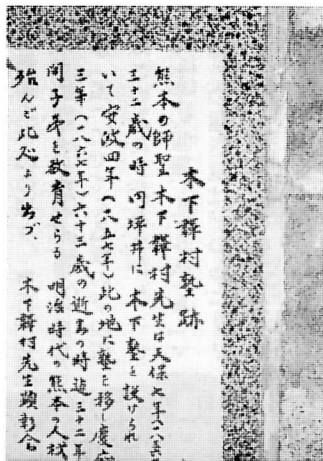 木下韡村塾跡
熊本の師聖木下韡村先生は天保七年(一八三六
三十二歳の時 内坪井に 木下塾を設けられ
いて 安政四年(一八五七年)此の地に塾を移し慶応
三年(一八六七年)六十三歳の逝去の時迄三十二年
間子弟を教育せらる 明治時代の熊本の人材
殆んど此処より出づ、 木下韡村先生顕彰会